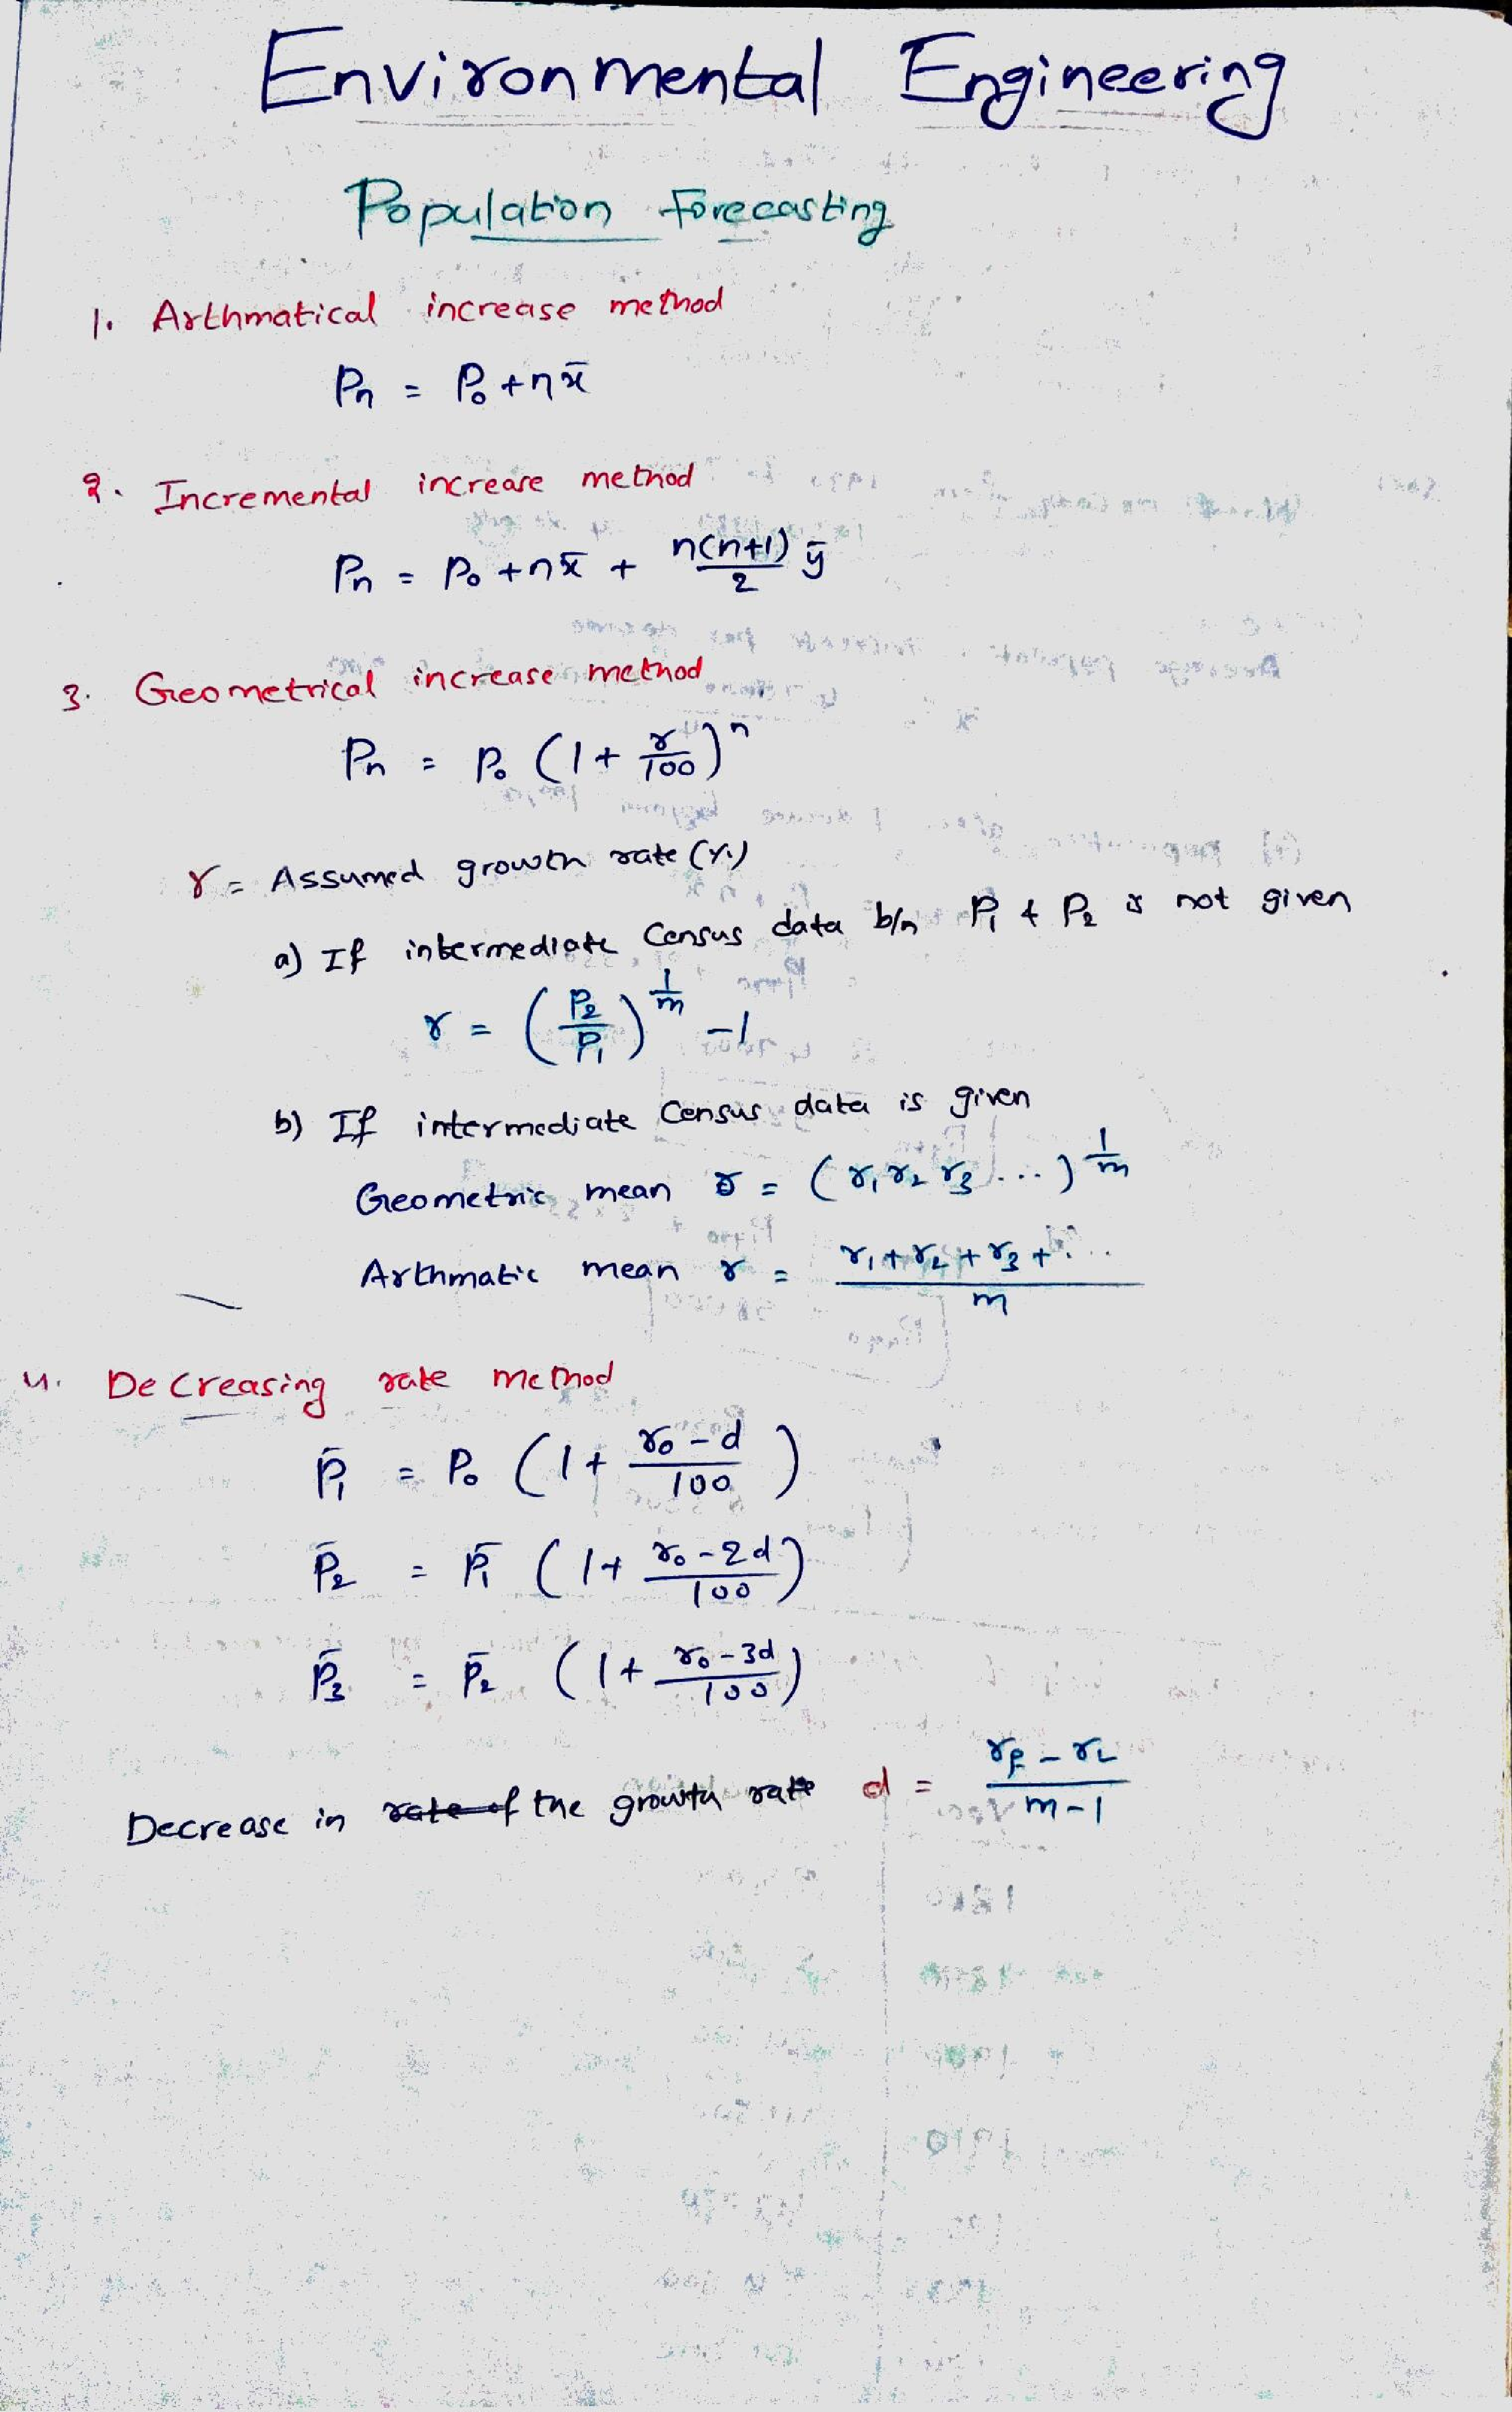 Environmental Engineering
Population Forecasting
1. Arthmatical increase method
Pn = P₀ + n x̄
2. Incremental increase method
Pn = P₀ + n x̄ + n(n+1)/2 ȳ
3. Geometrical increase method
Pn = P₀ (1 + r/100)ⁿ
r = Assumed growth rate (%)
a) If intermediate Census data b/n P₁ & P₂ is not given
r = (P₂/P₁)^(1/m) - 1
b) If intermediate Census data is given
Geometric mean r = (r₁ r₂ r₃ ...)^(1/m)
Arthmatic mean r = (r₁ + r₂ + r₃ + ...)/m
4. Decreasing rate method
P̄₁ = P₀ (1 + (r₀ - d)/100)
P̄₂ = P̄₁ (1 + (r₀ - 2d)/100)
P̄₃ = P̄₂ (1 + (r₀ - 3d)/100)
Decrease in rate of the growth rate d = (r_F - r_L)/(m-1)